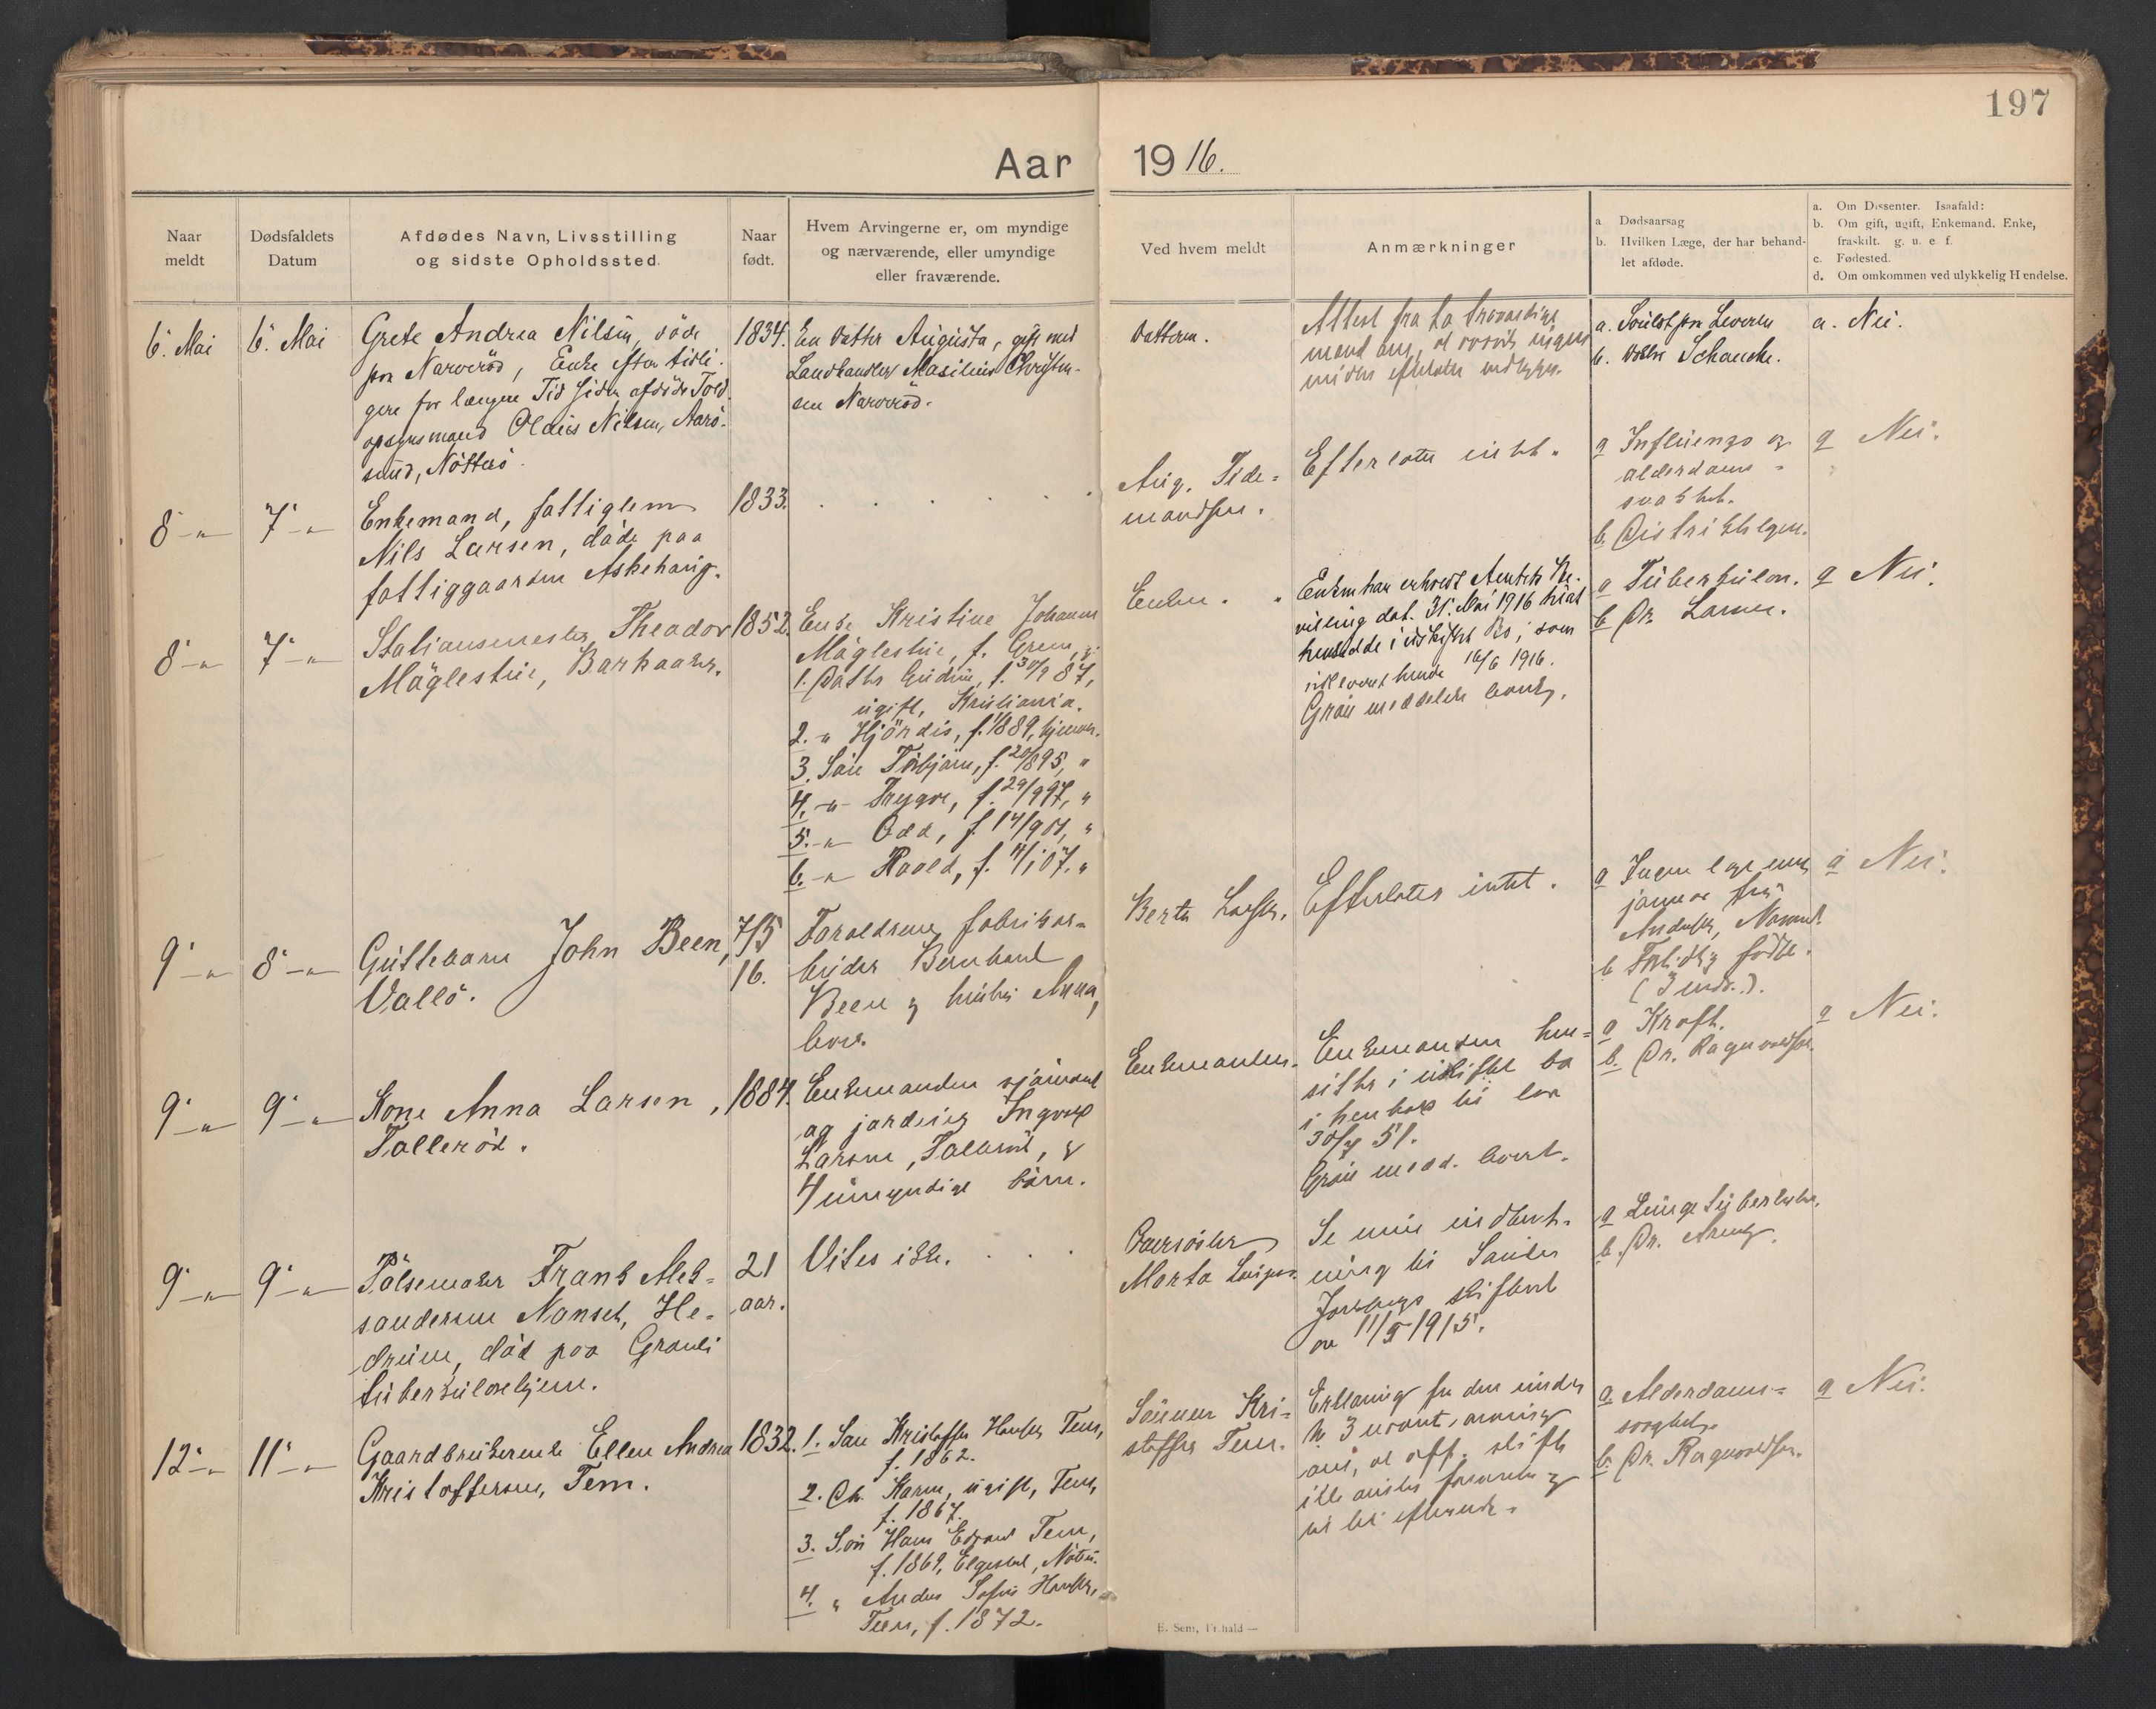 197
Aar 1916.
Naar meldt
Dødsfaldets Datum
Afdødes Navn, Livsstilling og sidste Opholdssted.
Naar født.
Hvem Arvingerne er, om myndige og nærværende, eller umyndige eller fraværende.
Ved hvem meldt
Anmærkninger
a Dødsaarsag
b. Hvilken Læge, der har behand-
let afdøde.
a. Om Dissenter. Isaafald:
b. Om gift, ugift, Enkemand. Enke,
fraskilt. g. u. e f.
c. Fødested.
d. Om omkommen ved ulykkelig Hændelse.
6. Mai
6. Mai
Grete Andrea Nilsen, döde
paa Narverød, Enke efter tidli-
gere for længere Tid siden afdöde Told-
opsynsmand Olaus Nilsen, Aarö-
sund, Nötterö.
1834.
En Datter Augusta, gift med
Landhandler Masilius Christen-
sen Narveröd.
Datteren.
Attest fra to troværdige
mænd om, at avdöde ingen
midler efterlater vedlegges.
a. Svulst paa Leveren
b. Schanche.
a. Nei.
8 -"-
7 -"-
Enkemand, fattiglem
Nils Larsen, döde paa
fattiggaarden Askehaug.
1833.
Aug. Tide-
mandsen.
Efterlater intet.
a Influenza og
alderdoms-
svakhet.
b. Distriktslægen.
a Nei.
8 -"-
7 -"-
Stationsmester Theodor
Mäglestue, Barkaaker.
1852.
Enke Kristine Johanne
Mäglestue, f.
1. Datter Gudrun, f. 30/9 87,
ugift, Kristiania.
2. " Hjördis, f. 1889, hjemme.
3. Sön Torbjörn, f. 20/895, "
4. -"- Trygve, f. 29/997, "
5. -"- Odd, f. 14/901, "
6. -"- Roald, f. 4/1 07. "
Enken.
Enken har erholdt Amtets Be-
villing dat. 31. Mai 1916 til at
hensidde i uskiftet Bo, som
utleveret hende 16/6 1916.
Grav meddelelse
a Tuberkulose.
b Dr. Larsen.
a Nei.
9 -"-
8 -"-
Guttebarn John Been,
Vallö.
7/5
16.
Foreldrene, fabrikar-
beider Bernhard
Been og hustru Anna,
lever.
Berta
Efterlater intet.
a Ingen læge men
jormor
b Fortidlig födt.
(3 mdr.).
a Nei.
9 -"-
9 -"-
Kone Anna Larsen,
Tolleröd.
1884.
Enkemanden sjömand
og jordeier Ingvald
Larsen, Tolleröd, og
4 umyndige börn.
Enkemanden.
Enkemanden hen-
sitter i uskiftet bo
i henhold til lov
30/7 51.
Grav medd.
a Kræft.
b. Dr. Ragnvaldsen.
a Nei.
9 -"-
9 -"-
Pölsemaker Frank Alek-
sandersen Nanset, He-
drum, död paa Grøuli
tuberkulosehjem.
21
aar.
Vites ikke.
Oversöster
Marta
Se min indberet-
ning til Sandar
Jarlsbergs skifteret
av 11/5 1915.
a Lungetuberkulose.
b. Dr.
12 -"-
11 -"-
Gaardbrukerenke Ellen Andrea
Kristoffersen, Tem.
1832.
1. Sön Kristoffer Hansen Tem,
f. 1862.
2. D. Karen, ugift, Tem,
f. 1867.
3. Sön Hans Edvard Tem,
f. 1869, Elgestad,
4. " Anders Sofus Hansen,
Tem, f. 1872.
Sönnen Kri-
stoffer Tem.
Erklæring fra den under
nr. 3 nævnte arving
om, at off. skifte
ikke önskes
a. Alderdoms-
svaghet.
b. Dr. Ragnvaldsen.
a Nei.
E. Sem, Fr.hald —